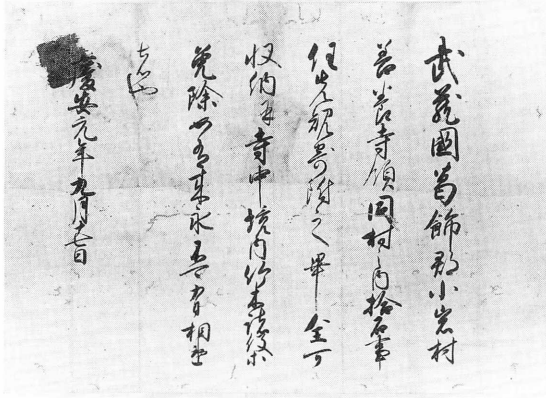 武蔵國葛飾郡小岩村
善養寺領同村之内拾石事
任先規寄附之畢全可
収納并寺中境内竹木諸役等
免除如有来永不可有相違
者也
慶安元年九月十七日